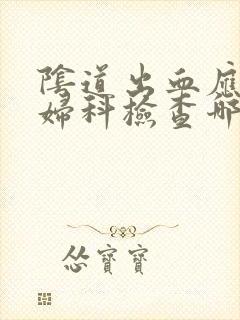 陰道出血應
婦科檢查哪
怂寶寶